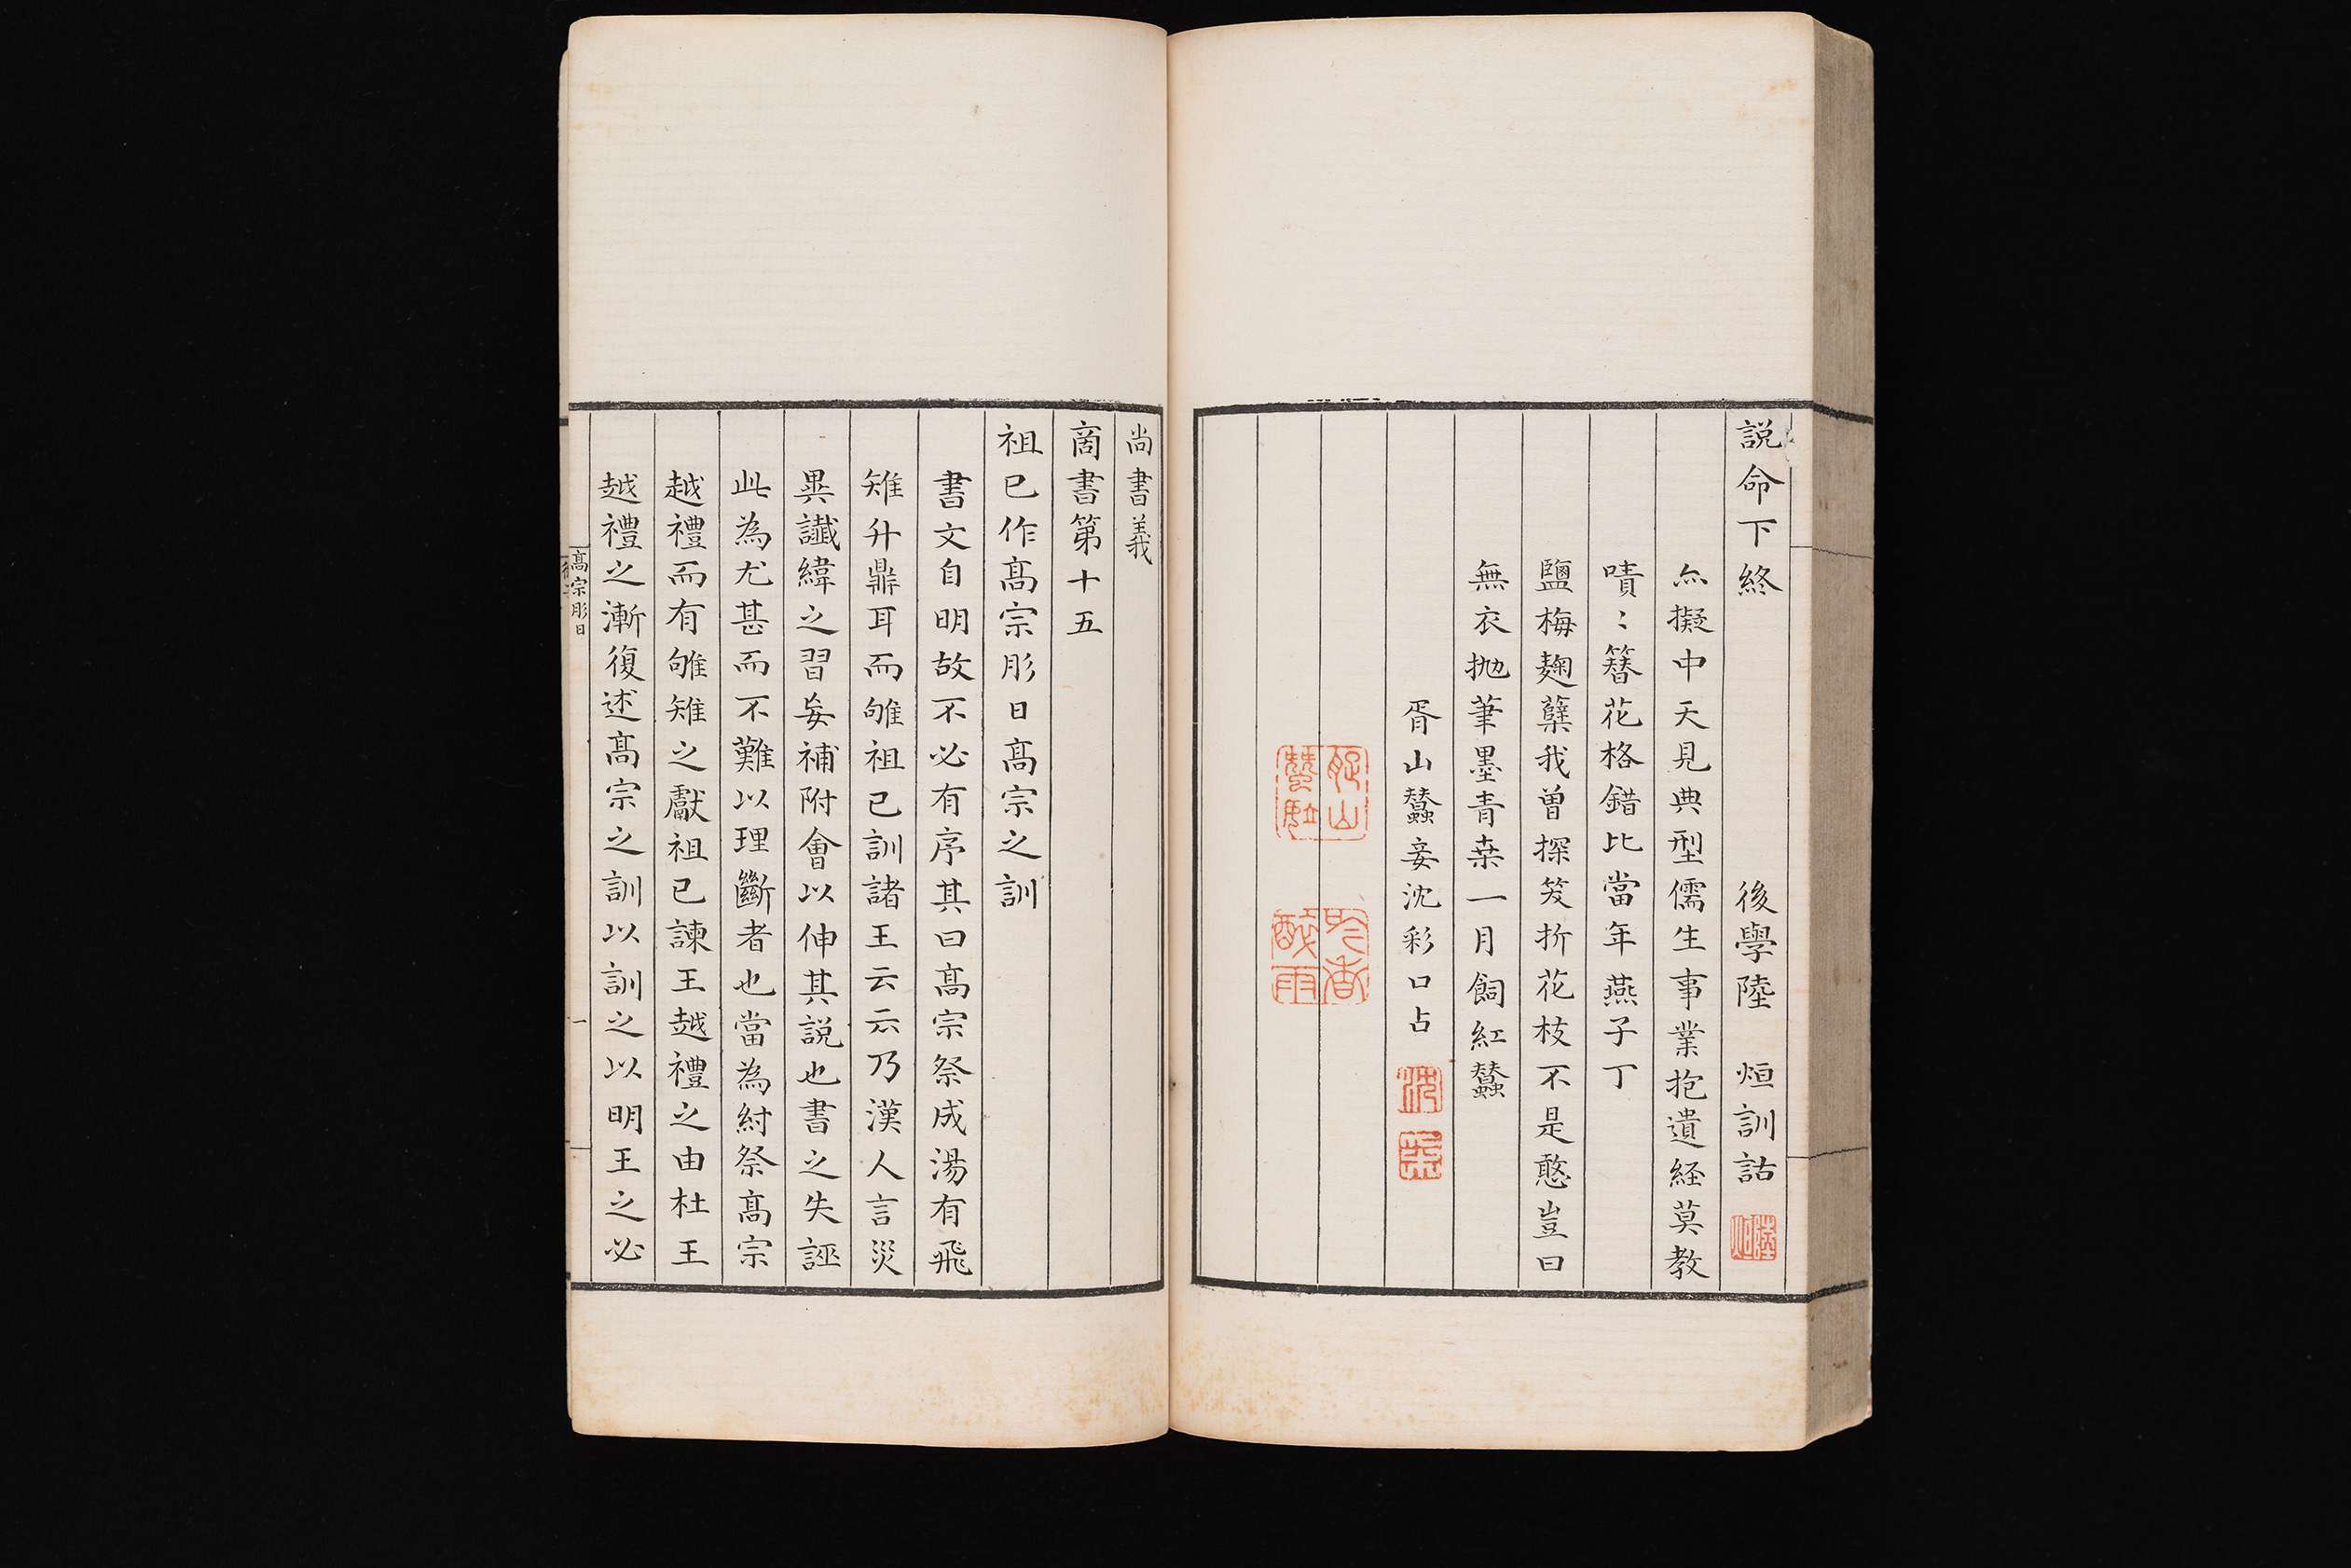 説命下終 後學陸 烜訓詁
陸烜
尒擬中天見典型儒生事業抱遺経莫教
嘖〻簪花格錯比當年燕子丁
鹽梅麴糱我曾探笑折花枝不是憨豈曰
無衣抛筆墨青桒一月飼紅蠶
胥山蠶妾沈彩口占
沈
采
尚書義
商書第十五
祖已作髙宗肜日髙宗之訓
書文自明故不必有序其曰髙宗祭成湯有飛
雉升鼎耳而雊祖已訓諸王云云乃漢人言災
異讖緯之習妄補附會以伸其説也書之失誣
此為尤甚而不難以理斷者也當為紂祭髙宗
越禮而有雊雉之獻祖已諫王越禮之由杜王
越禮之漸復述髙宗之訓以訓之以明王之必
髙宗肜日
一